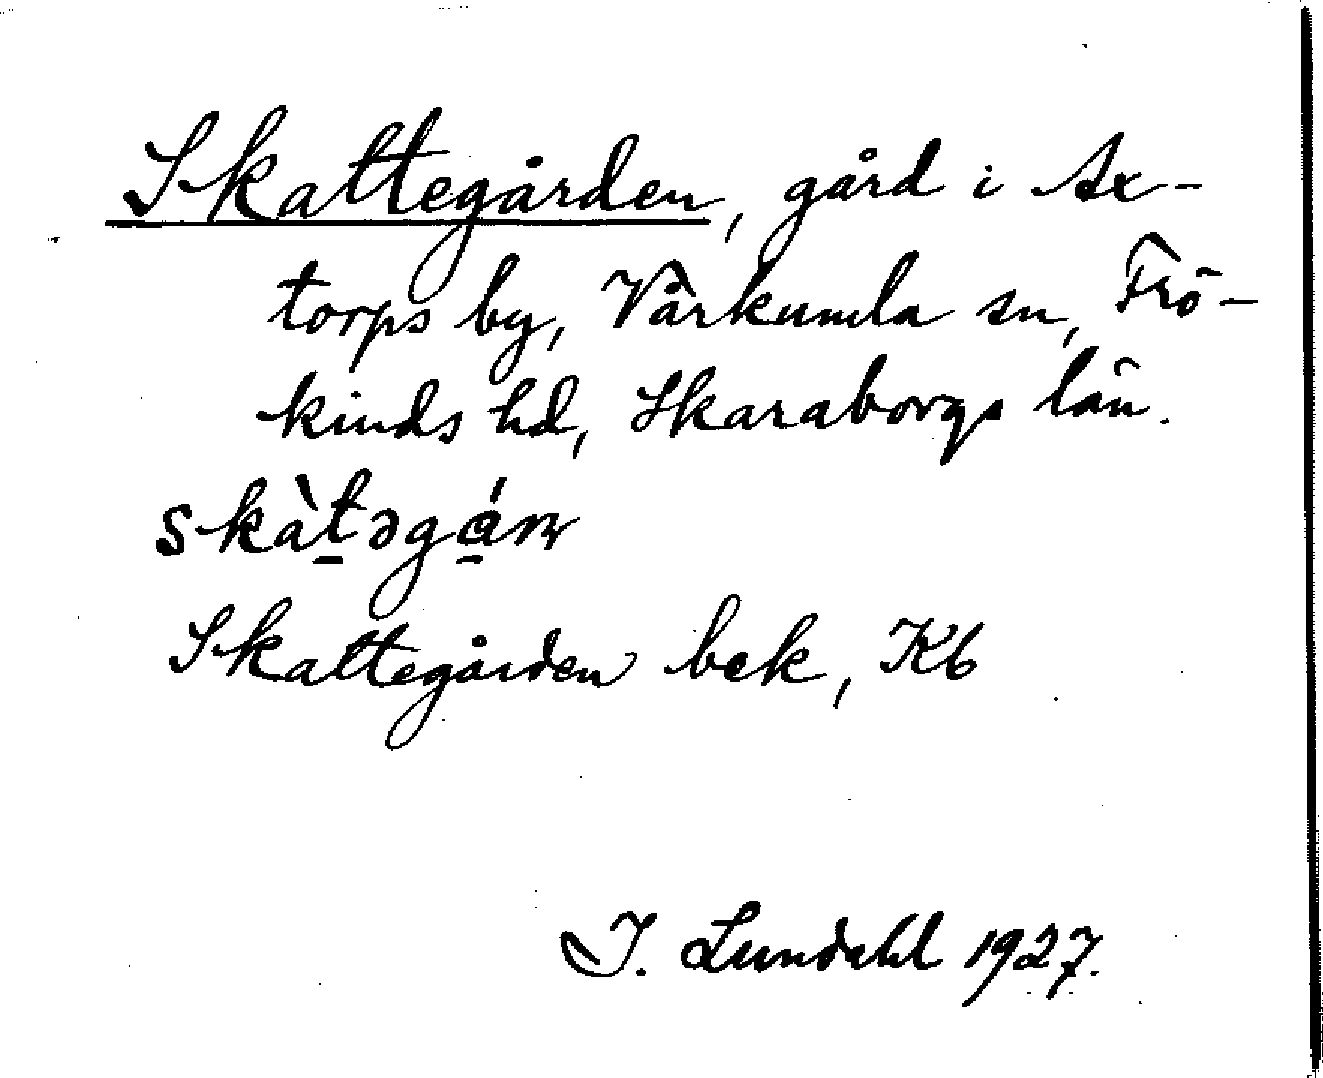 Skattegården, gård i Ax-
torps by, Vårkumla sn, Frö-
kinds hd, Skaraborgs län.
skàt̠əgán
Skattegården bek, Kb
I. Lundahl 1927.